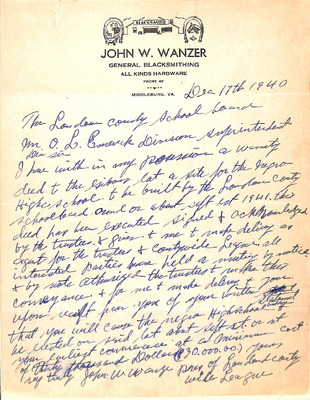 BLACKSMITH
JOHN W. WANZER
GENERAL BLACKSMITHING
ALL KINDS HARDWARE
MIDDLEBURG, VA.
Dec 17th 1940
The Loudoun County School board
Mr. O. L. Emerick Division Superintendent
Dear sir
I have with in my possession a warranty
deed to the lot a site for the negro
High school to be built by the Loudoun County
school board on or about sept 1st 1941. this
deed has been executed signed & acknowledged
by the trustees & given to me to make delivery as
agent for the trustees & Countywide League. all
interested parties have held a meeting by notice
& by vote authorized the trustees to make this
conveyance & for me to make delivery same
upon receipt from you of your written
that you will cause the negro High school to
be erected on said lot about sept 1st or at
your earliest convenience at a minimum cost
of thirty thousand Dollars ($30,000.00) yours
very truly John W Wanzer pres of Loudoun County
wide League